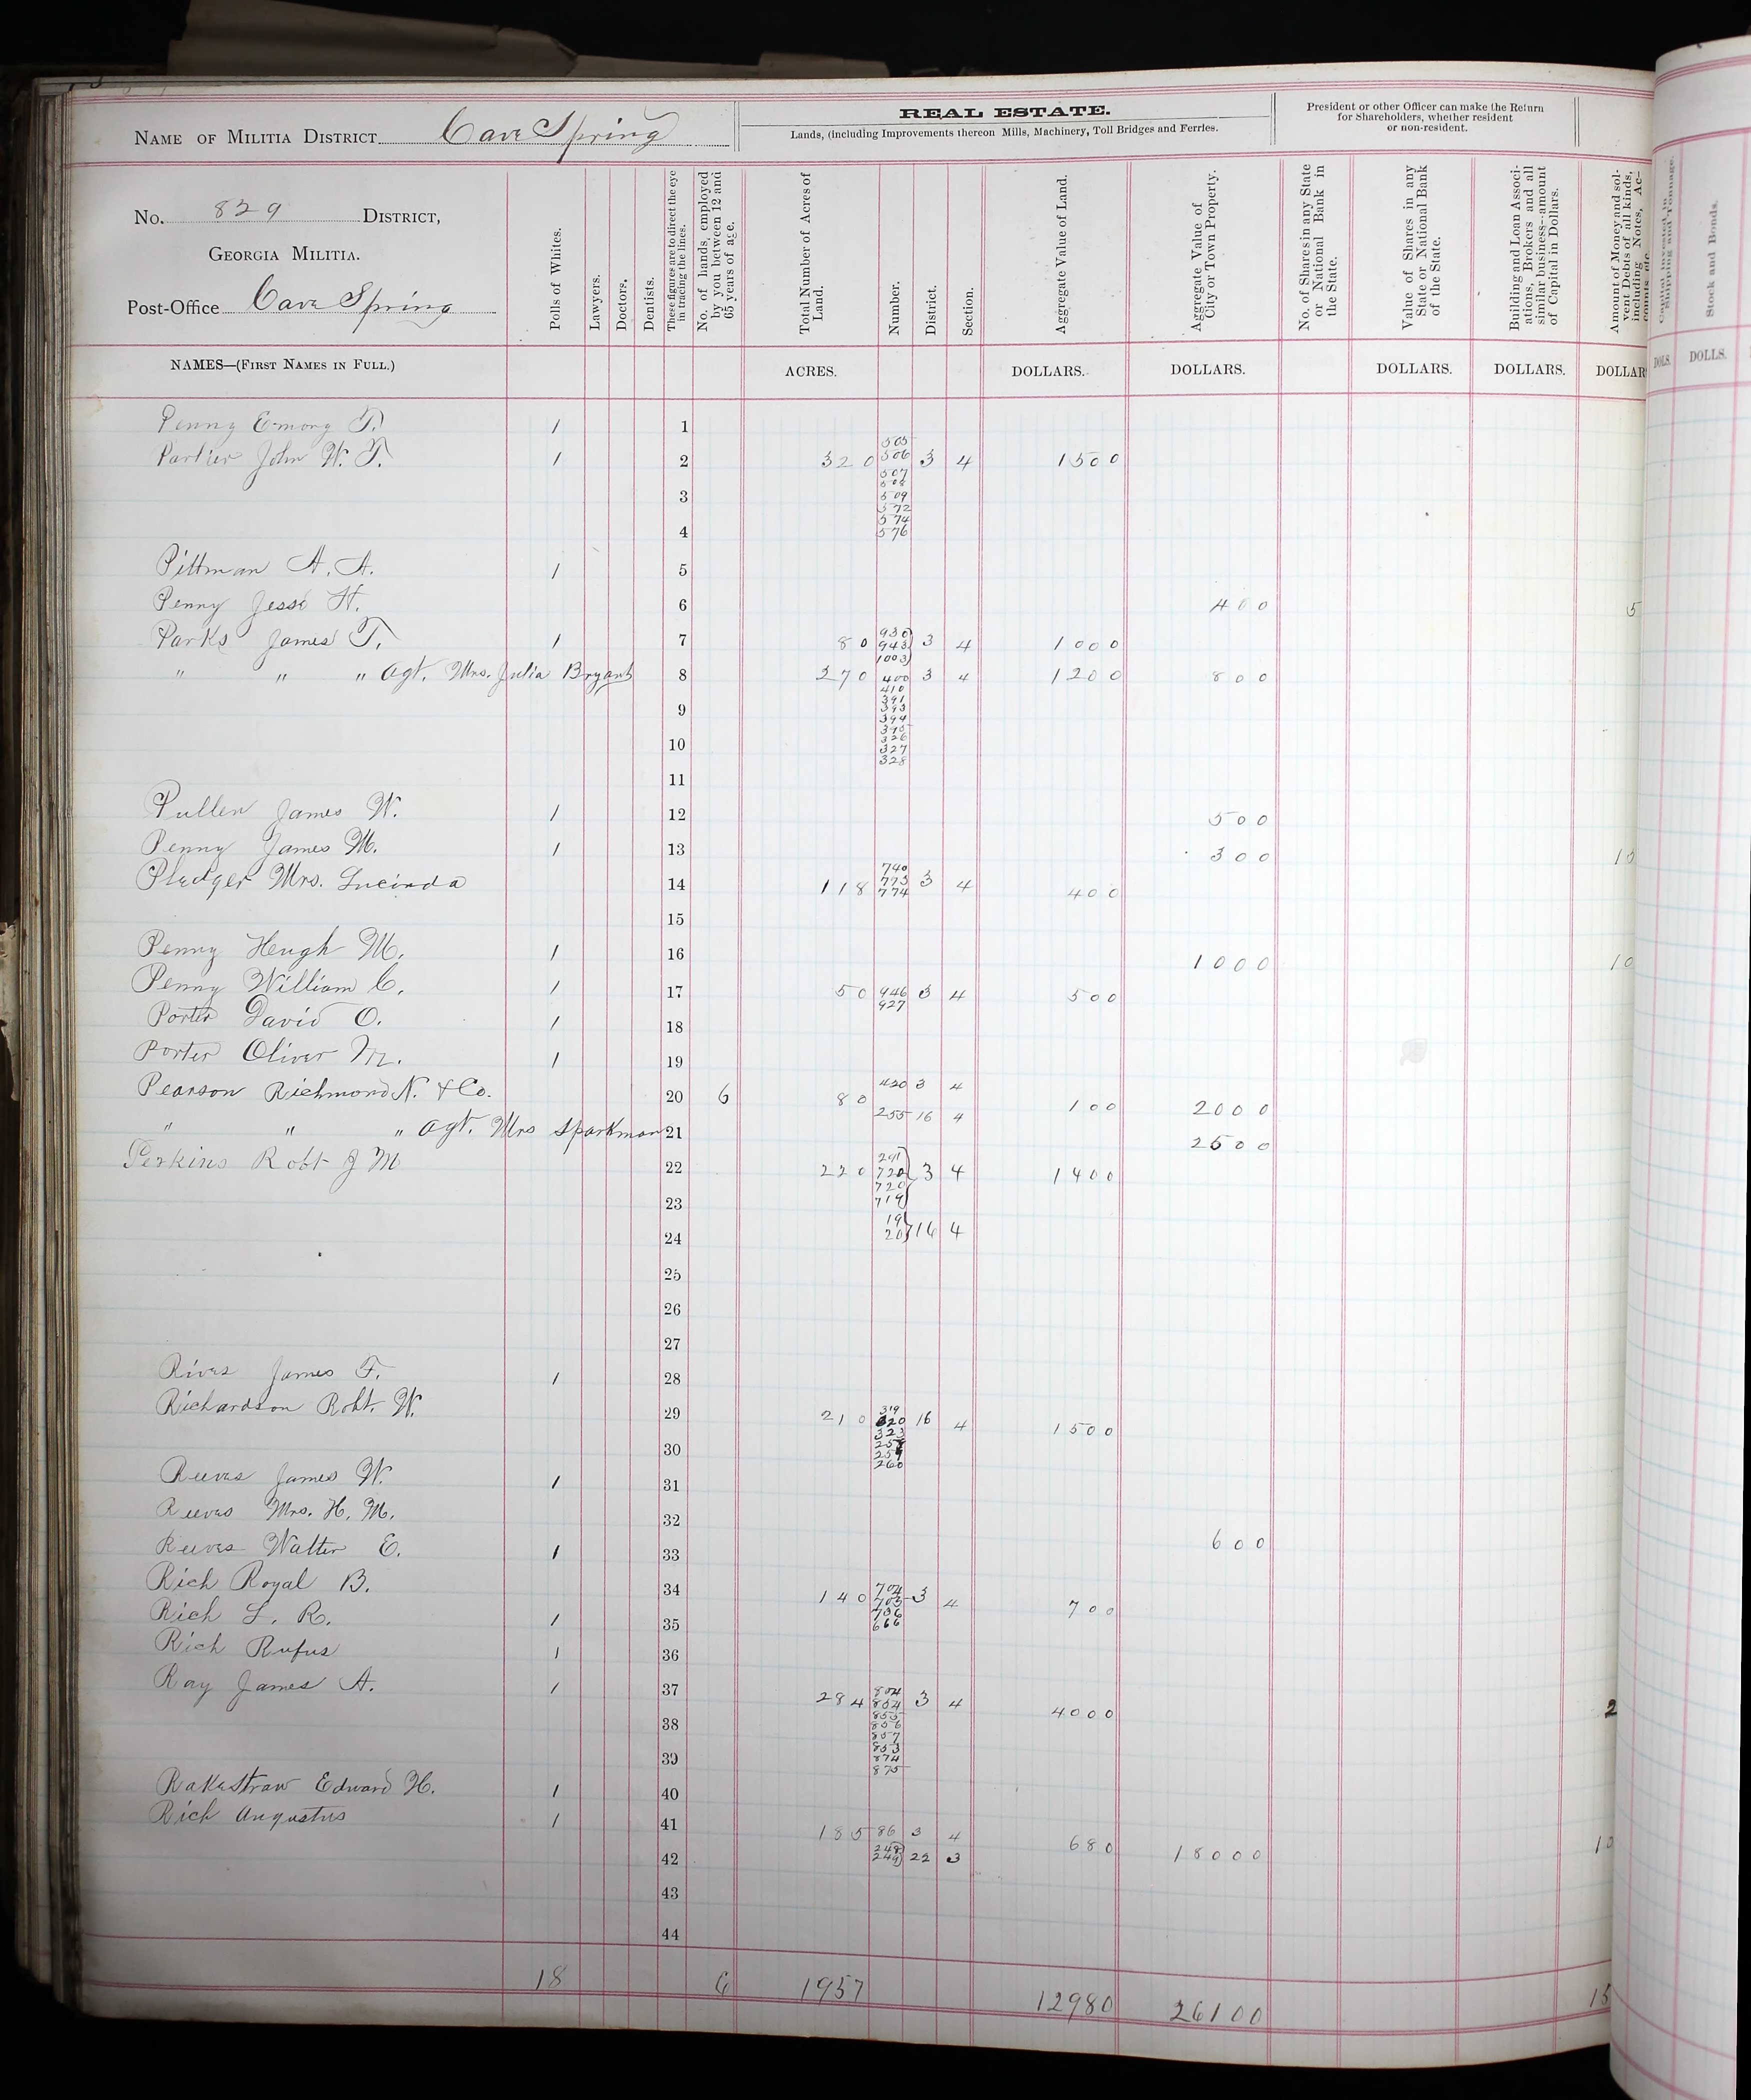 REAL ESTATE.
Lands, (including Improvements thereon Mills, Machinery, Toll Bridges and Ferries.
President or other Officer can make the Return
for Shareholders, whether resident
or non-resident.
NAME OF MILITIA DISTRICT Cave Spring
No. 829 DISTRICT,
GEORGIA MILITIA.
Post-Office Cave Spring
Polls of Whites.
Lawyers.
Doctors,
Dentists.
These figures are to direct the eye
in tracing the lines.
No. of hands, employed
by you between 12 and
65 years of age.
Total Number of Acres of
Land.
Number.
District.
Section.
Aggregate Value of Land.
Aggregate Value of
City or Town Property.
No. of Shares in any State
or National Bank in
the State.
Value of Shares in any
State or National Bank
of the State.
Building and Loan Associ-
ations, Brokers and all
similar business--amount
of Capital in Dollars.
Amount of Money and sol-
vent Debts of all kinds,
including Notes, Ac-
counts, etc.
Capital Invested in
Shipping and Tonnage.
Stock and Bonds.
NAMES—(FIRST NAMES IN FULL.) ACRES. DOLLARS. DOLLARS. DOLLARS. DOLLARS. DOLLAR DOLS. DOLLS.
Penny Emory T. 1 1
505
Parker John W. T. 1 2 320 506 3 4 1500
507
508
3 509
572
574
4 576
Pittman A. A. 1 5
Penny Jesse H. 6 400 5
930
Parks James T. 1 7 80 943 3 4 1000
1003
" " " Agt. Mrs. Julia Bryant 8 270 400 3 4 1200 800
410
391
9 393
394
395
10 326
327
328
11
Pullen James W. 1 12 500
Penny James M. 1 13 300 10
740
Pledger Mrs. Lucinda 14 118 773 3 4 400
774
15
Penny Heugh M. 1 16 1000 10
Penny William C. 1 17 50 946 3 4 500
927
Porter David O. 1 18
Porter Oliver M. 1 19
420 3 4
Pearson Richmond N. & Co. 20 6 80 100 2000
255 16 4
" " " Agt. Mrs Sparkman 21 2500
291
Perkins Robt J M 22 220 720 3 4 1400
720
23 719
19
24 20 16 4
25
26
27
Rives James F. 1 28
319
Richardson Robt. W. 29 210 320 16 4 1500
323
30 260
Reeves James W. 1 31
Reeves Mrs. H. M. 32
Reeves Walter E. 1 33 600
Rich Royal B. 34 140 704 3 4 700
705
706
666
Rich L. R. 1 35
Rich Rufus 1 36
Ray James A. 1 37 284 804 3 4 4000 2
854
855
38 856
857
853
39 874
875
Rakestraw Edward H. 1 40
Rich Augustus 1 41 185 86 3 4 680 18000 10
248
42 249 22 3
43
44
18 6 1957 12980 26100 15